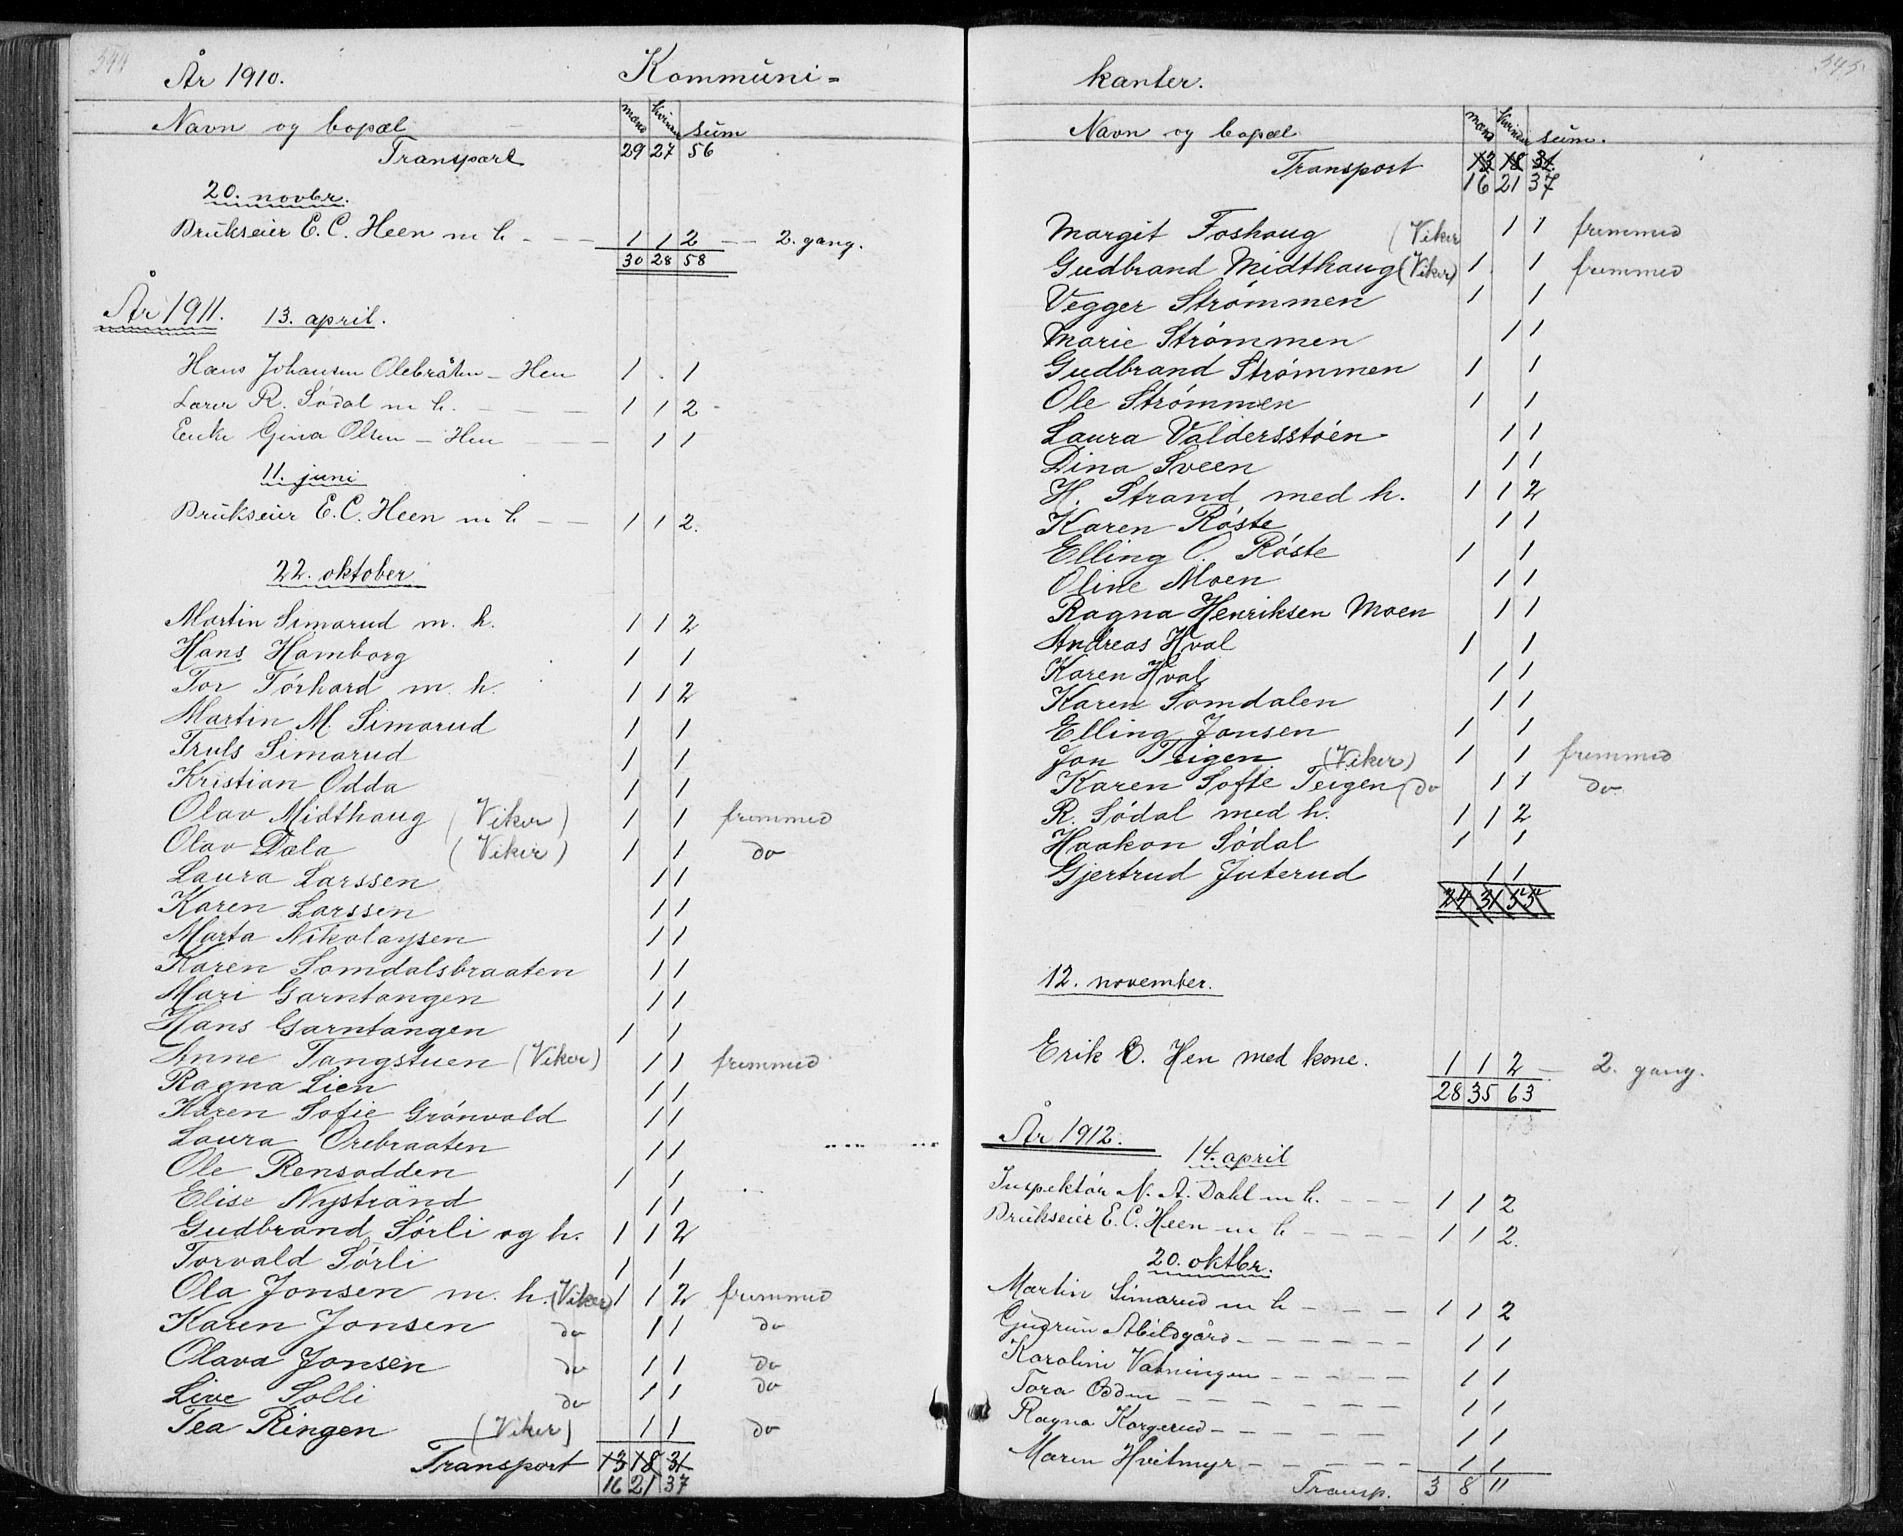 544
År 1910. Kommuni-
Navn og bopæl mænd kvinder sum
Transport 29 27 56
20. novbr.
Brukseier E. C. Heen m h. - - 1 1 2 - - 2. gang.
30 28 58
År 1911. 13. april.
Hans Johansen Olebråten - Hen 1 . 1
Lærer R. Sødal m h. - - - 1 1 2
Enke Gina Olsen - Hen - - 1 1
11. juni
Brukseier E. C. Heen m h - - 1 1 2.
22. oktober
Martin Simarud m. h. 1 1 2
Hans Hamborg 1 1
Tor Tórhard m. h. 1 1 2
Martin M. Simarud 1 1
Truls Simarud 1 1
Kristian Odda 1 1
Olav Midthaug (Viker) 1 1 fremmed
Olav Dæla (Viker) 1 1 do
Laura Larssen 1 1
Karen Larssen 1 1
Marta Nikolaysen 1 1
Karen Somdalsbraaten 1 1
Mari Garntangen 1 1
Hans Garntangen 1 1
Anne Tangstuen (Viker) 1 1 fremmed
Ragna Lien 1 1
Karen Sofie Grónvold 1 1
Laura Orebraaten 1 1
Ole Rensodden 1 1
Elise Nystrand 1 1
Gudbrand Sórli og h. 1 1 2
Torvald Sórli 1 1
Ola Jonsen m. h. (Viker) 1 1 2 fremmed
Karen Jonsen do 1 1 do
Olava Jonsen do 1 1 do
Live Solli do 1 1 do
Tea Ringen (Viker) 1 1 do
Transport 13 18 31
16 21 37
545.
kanter.
Navn og bopæl mænd kvinder sum.
Transport 13 18 31.
16 21 37
Margit Foshaug (Viker 1 1 fremmed
Gudbrand Midthaug (Viker) 1 1 fremmed
Vegger Strómmen 1 1
Marie Strómmen 1 1
Gudbrand Strómmen 1 1
Ole Strómmen 1 1
Laura Valdersstóen 1 1
Dina Sveen 1 1
H. Strand med h. 1 1 2
Karen Róste 1 1
Elling O. Róste 1 1
Oline Moen 1 1
Ragna Henriksen Moen 1 1
Andreas Hval 1 1
Karen Hval 1 1
Karen Somdalen 1 1
Elling Jonsen 1 1
Jon Teigen (Viker) 1 1 fremmed
Karen Sofie Teigen (do 1 1 do
R. Sódal med h. 1 1 2
Haakon Sódal 1 1
Gjertrud Juterud 1 1
24 31 55
12. november.
Erik O. Hen med kone. 1 1 2 - 2. gang.
28 35 63
År 1912. 14. april
Inspektør N. A. Dahl m h. - - - 1 1 2
Brukseier E. C. Heen m h - - - - 1 1 2.
20. oktbr.
Martin Simarud m h - - - 1 1 2
Gudrun Abildgård - - - - - 1 1
Karoline Vatningen - - - - - 1 1
Tora Odden - - - - - - 1 1
Ragna Korgerud - - - - - 1 1
Maren Hvitmyr - - - - - 1 1
Transp. 3 8 11